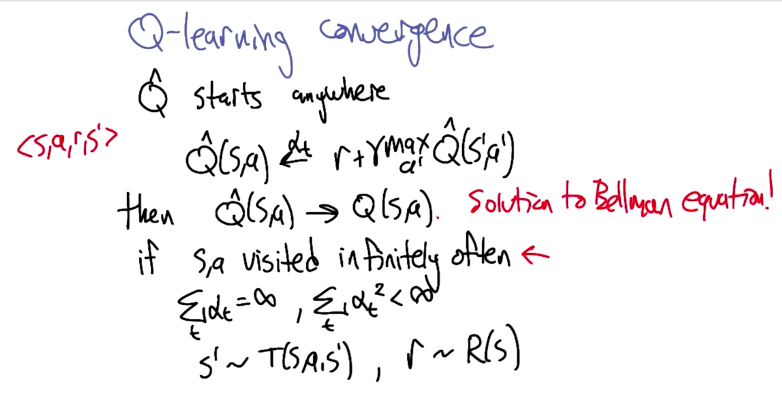 Q-learning convergence
Q̂ starts anywhere
<s,a,r,s'>
Q̂(s,a) ←^αt r+γ max_a' Q̂(s',a')
then Q̂(s,a) → Q(s,a). Solution to Bellman equation!
if s,a visited infinitely often ←
Σ_t αt = ∞ , Σ_t αt² < ∞
s' ~ T(s,a,s') , r ~ R(s)